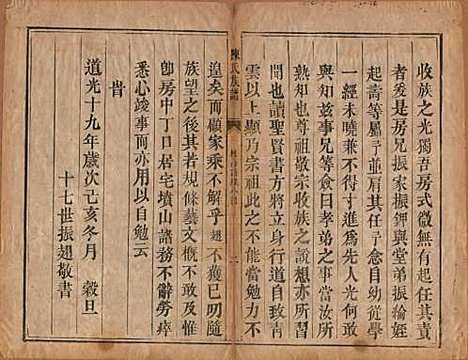 收族之光獨吾房式微無有任其責
者委是房兄振家振鉀與堂弟振綸姪
起壽等屬予並肩其任予自幼從學
一經未曉兼不得寸進為先人光何敢
與知茲事兄等復曰孝弟之事子
熟知也尊祖敬宗收族之說想亦所習
聞也讀聖賢書方將立身行道致青
雲以上顯乃宗祖此之不能當勉力不
陳氏族譜
二
遑矣而顧家乘不解乎趙不獲已叨隨
族望之後其者梗概不及備核及
即房中丁口居宅墳山諸務不辭勞瘁
悉心竣事而亦用以自勉云
旹
道光十九年歲次己亥冬月 穀旦
十七世振趙敬書